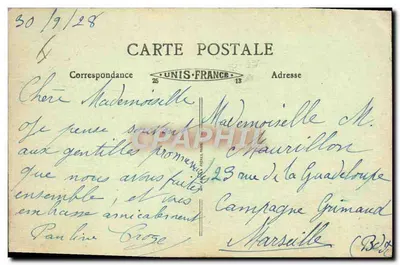 30/9/28
CARTE POSTALE
Correspondance
UNIS-FRANCE
Adresse
Chère Mademoiselle
Je pense souvent
aux gentilles promenades
que nous avons faites
ensemble, et vous
embrasse amicalement
Pauline
Mademoiselle M.
Maurillon
123 rue de la Guadeloupe
Campagne Grimaud
Marseille
CPARAMA